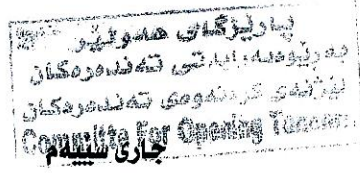 پارێزگای هەولێر
بەڕێوەبەرایەتی تەندەرەکان
لێژنەی کردنەوەی تەندەرەکان
Committe For Opening
جاری سێیەم